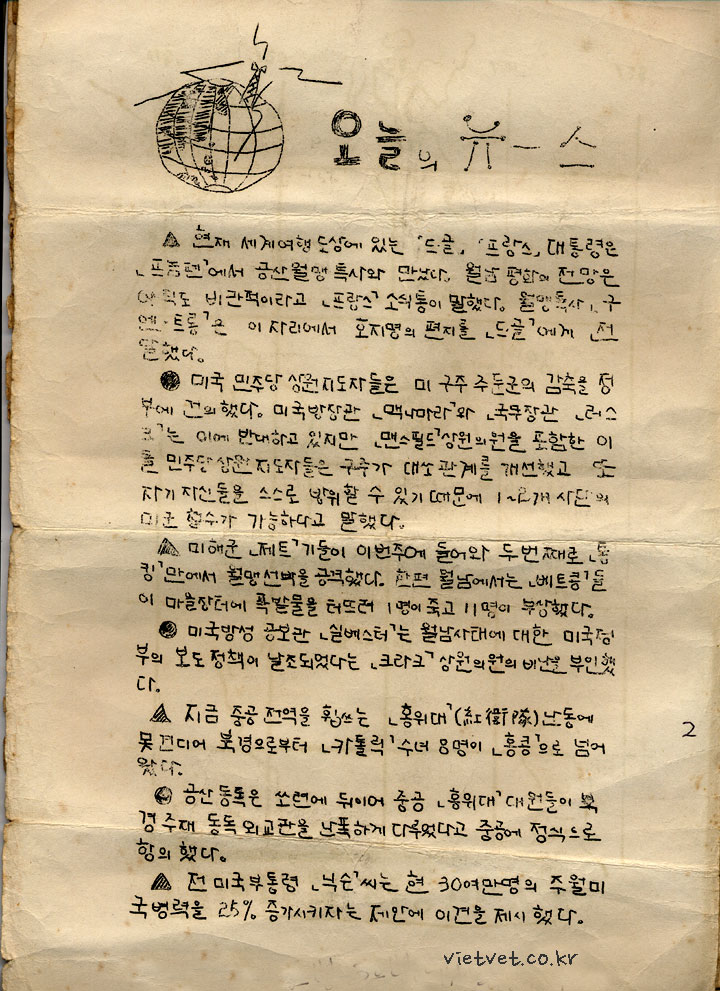 오늘의 뉴-스
▲ 현재 세계여행 도상에 있는 「드·골」, 「프랑스」 대통령은
「프놈펜」에서 공산월맹 특사와 만났다. 월남 평화의 전망은
아직도 비관적이라고 「프랑스」 소식통이 말했다. 월맹특사 「구
엔·트롱」은 이 자리에서 호지명의 편지를 「드골」에게 전
달했다.
● 미국 민주당 상원지도자들은 미 구주 주둔군의 감축을 정
부에 건의했다. 미국방장관 「맥나마라」와 「국무장관 「러스
크」는 이에 반대하고 있지만 「맨스필드」 상원의원을 포함한 이
들 민주당 상원지도자들은 구주가 대소관계를 개선했고 또
자기 자신들을 스스로 방위할 수 있기 때문에 1~2개 사단의
미군 철수가 가능하다고 말했다.
▲ 미해군 「제트」기들이 이번주에 들어와 두번째로 「통
킹」만에서 월맹선박을 공격했다. 한편 월남에서는 「베트콩」들
이 마을장터에 폭발물을 터뜨려 1명이 죽고 11명이 부상했다.
● 미국방성 공보관 「실베스터」는 월남사태에 대한 미국정
부의 보도정책이 날조되었다는 「크라크」 상원의원의 비난을 부인했
다.
▲ 지금 중공 전역을 휩쓰는 「홍위대」(紅衛隊) 난동에
못견디어 북경으로부터 「카톨릭」 수녀 8명이 「홍콩」으로 넘어
왔다.
● 공산 동독은 쏘련에 뒤이어 중공 「홍위대」 대원들이 북
경 주재 동독 외교관을 난폭하게 다루었다고 중공에 정식으로
항의했다.
▲ 전 미국부통령 「닉슨」씨는 현 30여만명의 주월미
국병력을 25% 증가시키자는 제안에 이견을 제시했다.
2
vietvet.co.kr